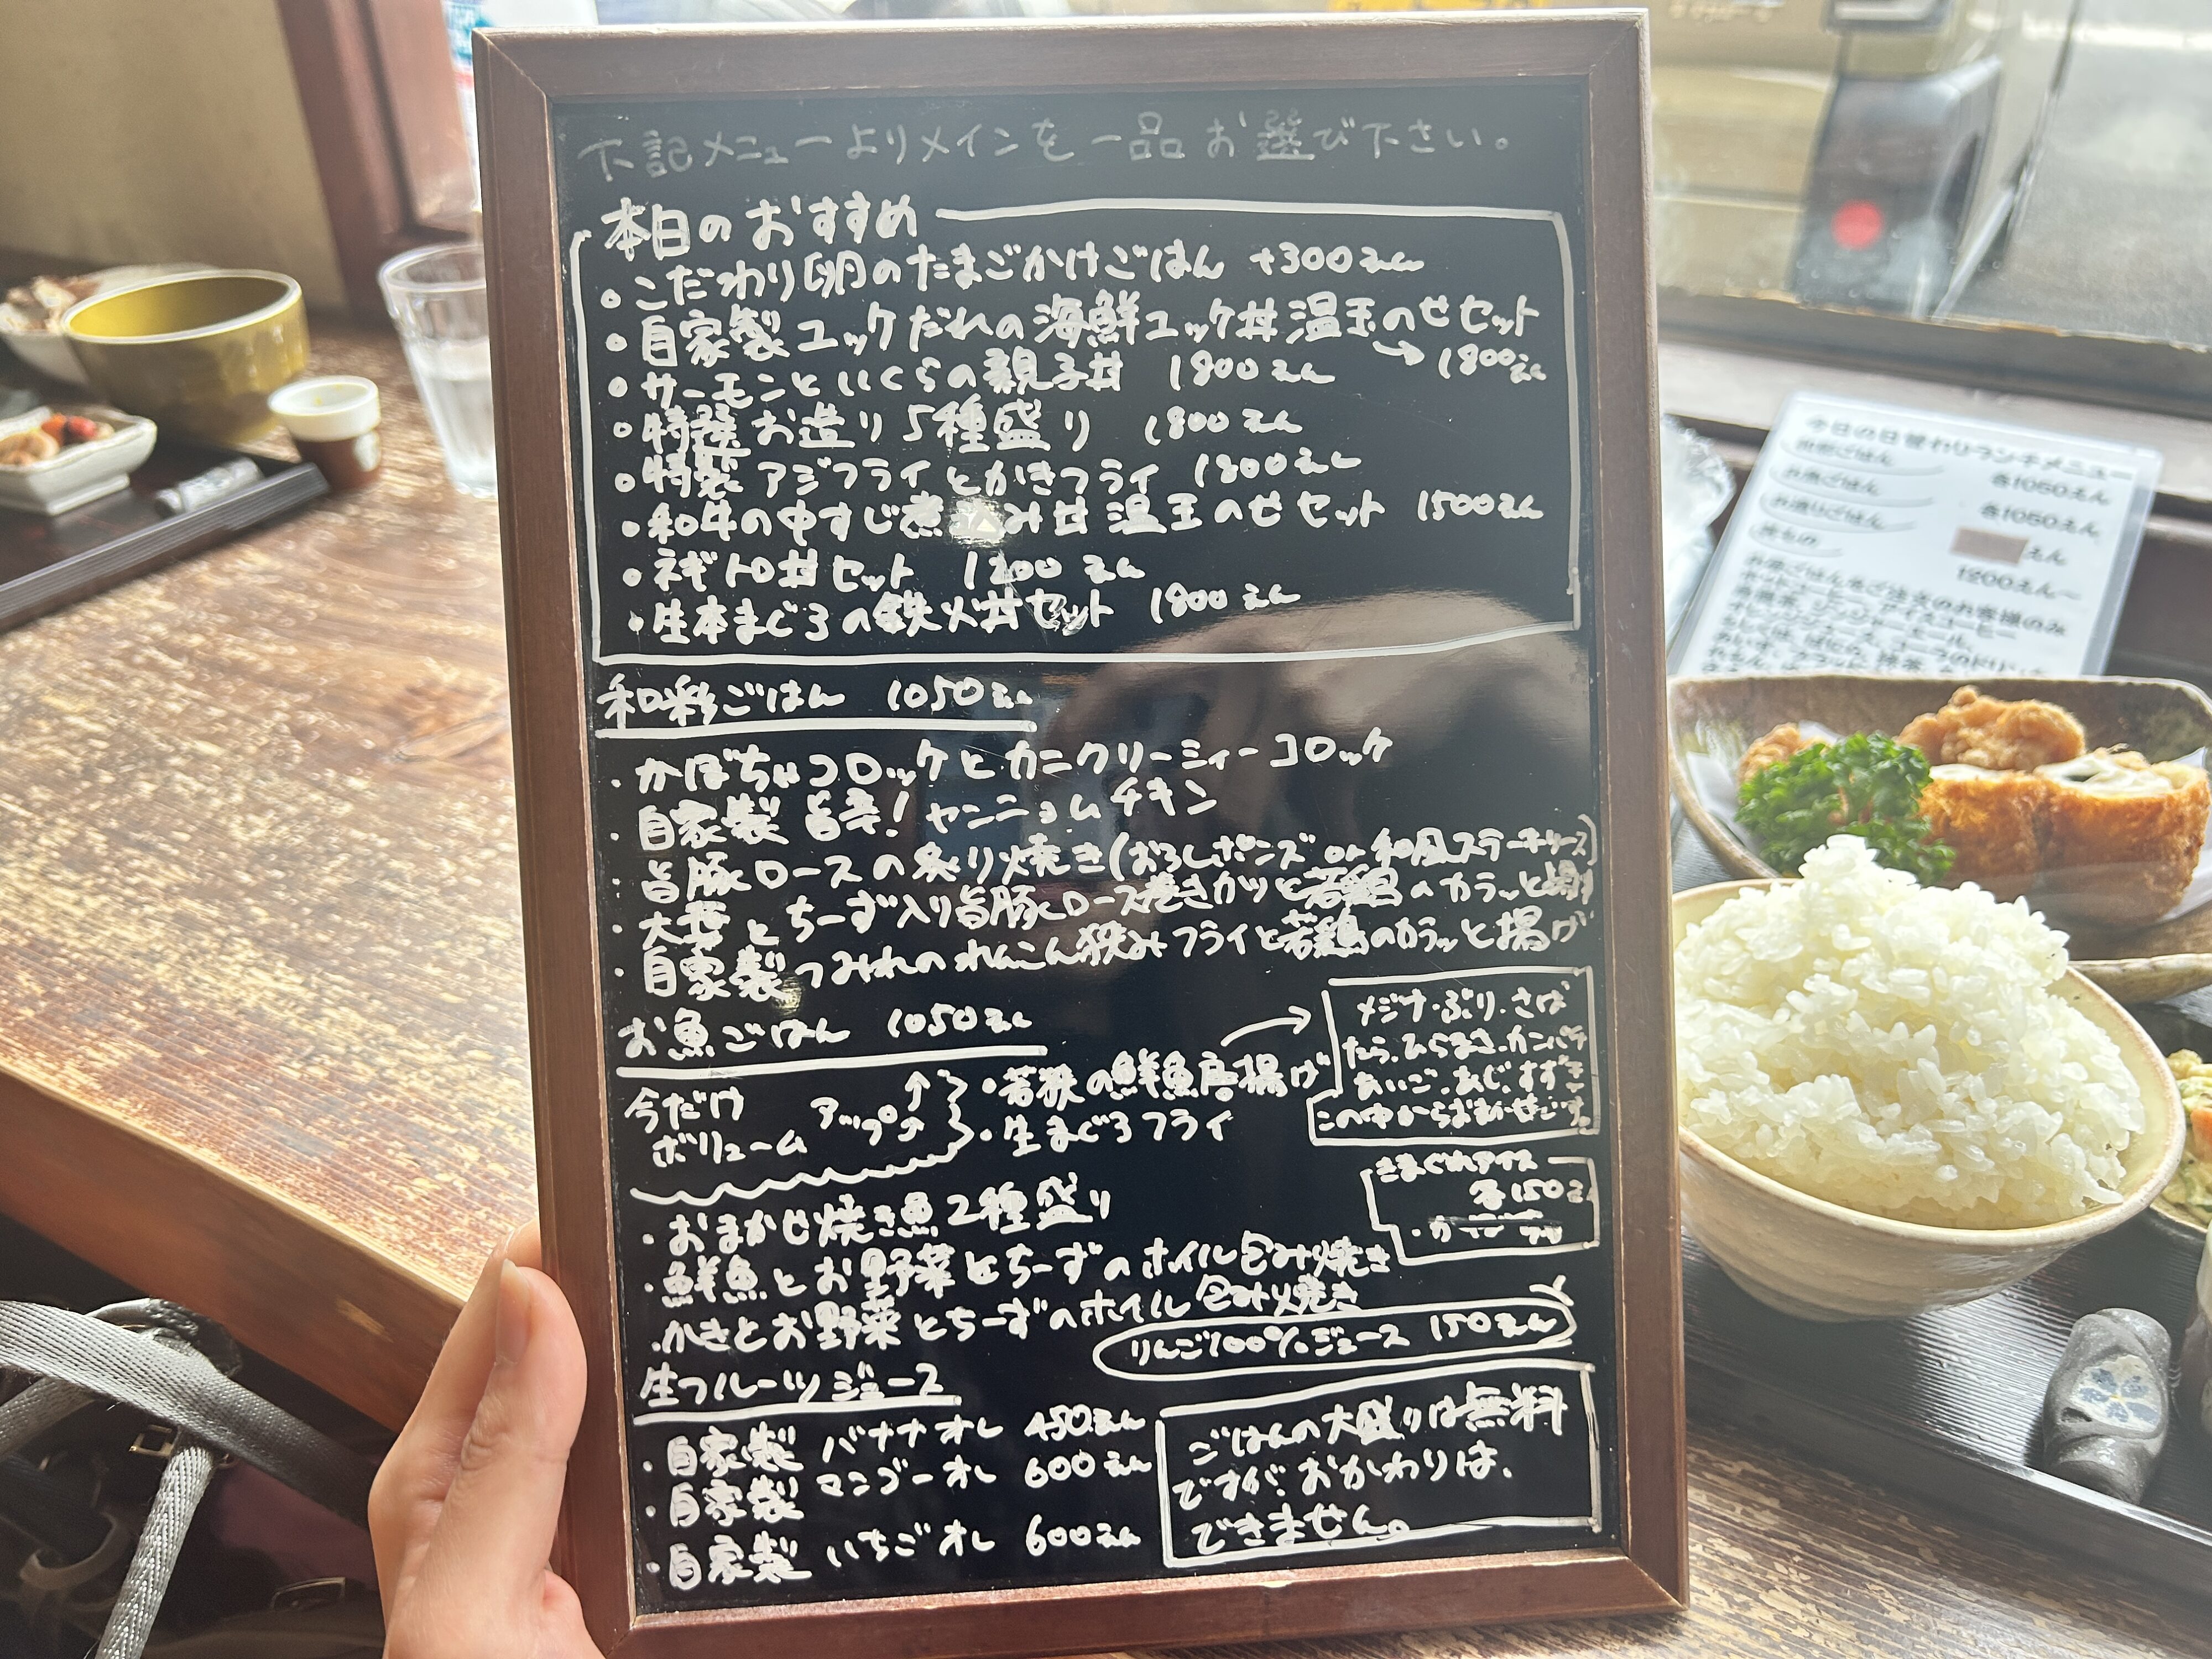 下記メニューよりメインを一品お選び下さい。
本日のおすすめ
・こだわり卵のたまごかけごはん +300えん
・自家製ユッケだれの海鮮ユッケ丼温玉のせセット
→1800えん
・サーモンといくらの親子丼 1800えん
・特選お造り5種盛り 1800えん
・特製アジフライとかきフライ 1800えん
・和牛の中すじ煮込み丼温玉のせセット 1500えん
・ネギトロ丼セット 1200えん
・生本まぐろの鉄火丼セット 1800えん
和彩ごはん 1050えん
・かぼちゃコロッケとカニクリーミィーコロッケ
・自家製 旨辛!ヤンニョムチキン
・旨豚ロースの炙り焼き(おろしポンズor和風ステーキソース)
・大葉とちーず入り旨豚ロース巻きカツと若鶏のカラッと揚げ
・自家製つみれのれんこん挟みフライと若鶏のカラッと揚げ
お魚ごはん 1050えん
今だけ
ボリューム
アップ↑
・若狭の鮮魚唐揚げ
・生まぐろフライ
メジナ・ぶり・さば
たら・ひらまさ・カンパチ
あいご・あじ・すずき
この中からおまかせです。
・おまかせ焼き魚2種盛り
・鮮魚とお野菜とちーずのホイル包み焼き
・かきとお野菜とちーずのホイル包み焼き
きまぐれアイス
各150えん
りんご100%ジュース 150えん
生フルーツジュース
・自家製 バナナオレ 450えん
・自家製 マンゴーオレ 600えん
・自家製 いちごオレ 600えん
ごはんの大盛りは無料
ですが、おかわりは、
できません。
今日の日替わりランチメニュー
和彩ごはん 各1050えん
お魚ごはん 各1050えん
お造りごはん えん
丼もの 1200えん~
お昼ごはんをご注文のお客様のみ